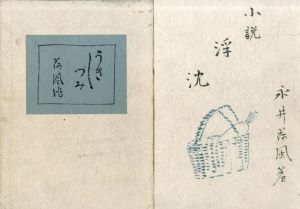 うき
しづみ
荷風作
小説
浮沈
永井荷風著